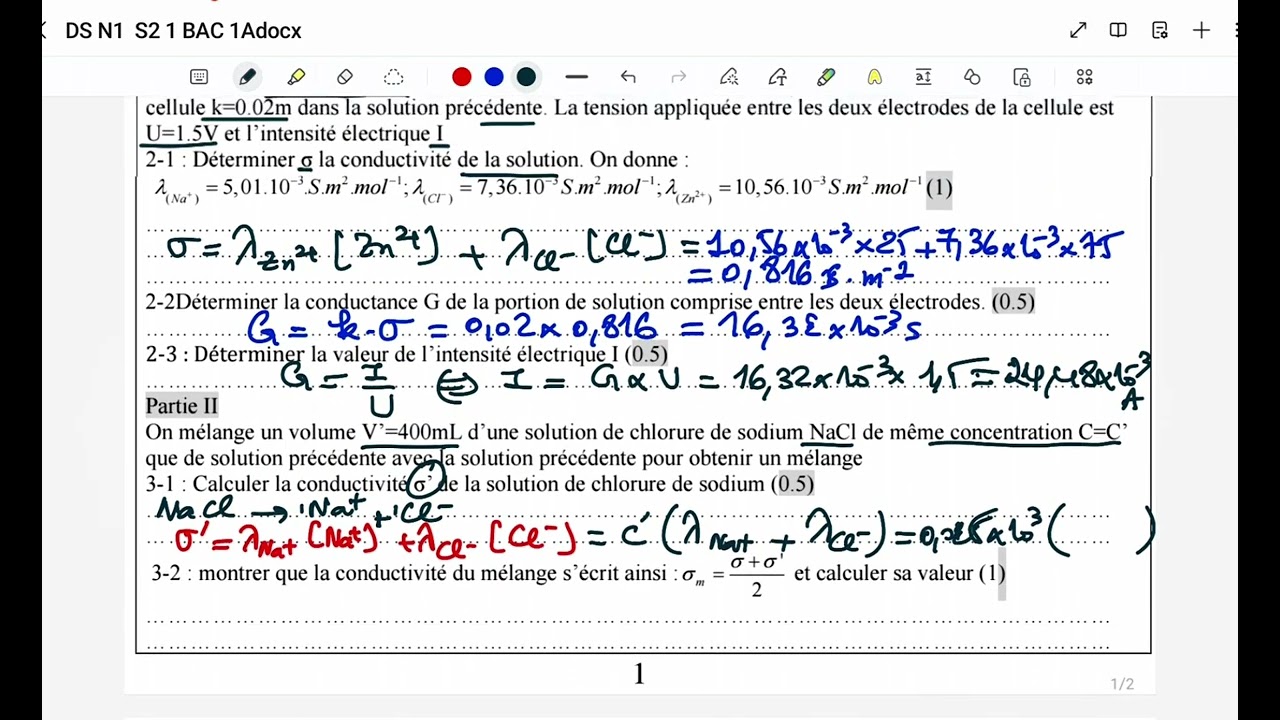 DS N1 S2 1 BAC 1Adocx
cellule k=0.02m dans la solution précédente. La tension appliquée entre les deux électrodes de la cellule est
U=1.5V et l'intensité électrique I
2-1 : Déterminer σ la conductivité de la solution. On donne :
λ(Na⁺) = 5,01.10⁻³ S.m².mol⁻¹; λ(Cl⁻) = 7,36.10⁻³ S.m².mol⁻¹; λ(Zn²⁺) = 10,56.10⁻³ S.m².mol⁻¹ (1)
σ = λZn²⁺ [Zn²⁺] + λCl⁻ [Cl⁻] = 10,56×10⁻³×25+7,36×10⁻³×75
= 0,816 S.m⁻²
2-2Déterminer la conductance G de la portion de solution comprise entre les deux électrodes. (0.5)
G = k.σ = 0,02 × 0,816 = 16,32×10⁻³ S
2-3 : Déterminer la valeur de l'intensité électrique I (0.5)
G = I/U ⇔ I = G×U = 16,32×10⁻³× 1,5 = 24,48×10⁻³ A
Partie II
On mélange un volume V'=400mL d'une solution de chlorure de sodium NaCl de même concentration C=C'
que de solution précédente avec la solution précédente pour obtenir un mélange
3-1 : Calculer la conductivité σ' de la solution de chlorure de sodium (0.5)
NaCl → 1Na⁺ + 1Cl⁻
σ' = λNa⁺ [Na⁺] + λCl⁻ [Cl⁻] = C' (λNa⁺ + λCl⁻) = ×10³ ( )
3-2 : montrer que la conductivité du mélange s'écrit ainsi : σm = (σ+σ')/2 et calculer sa valeur (1)
1
1/2